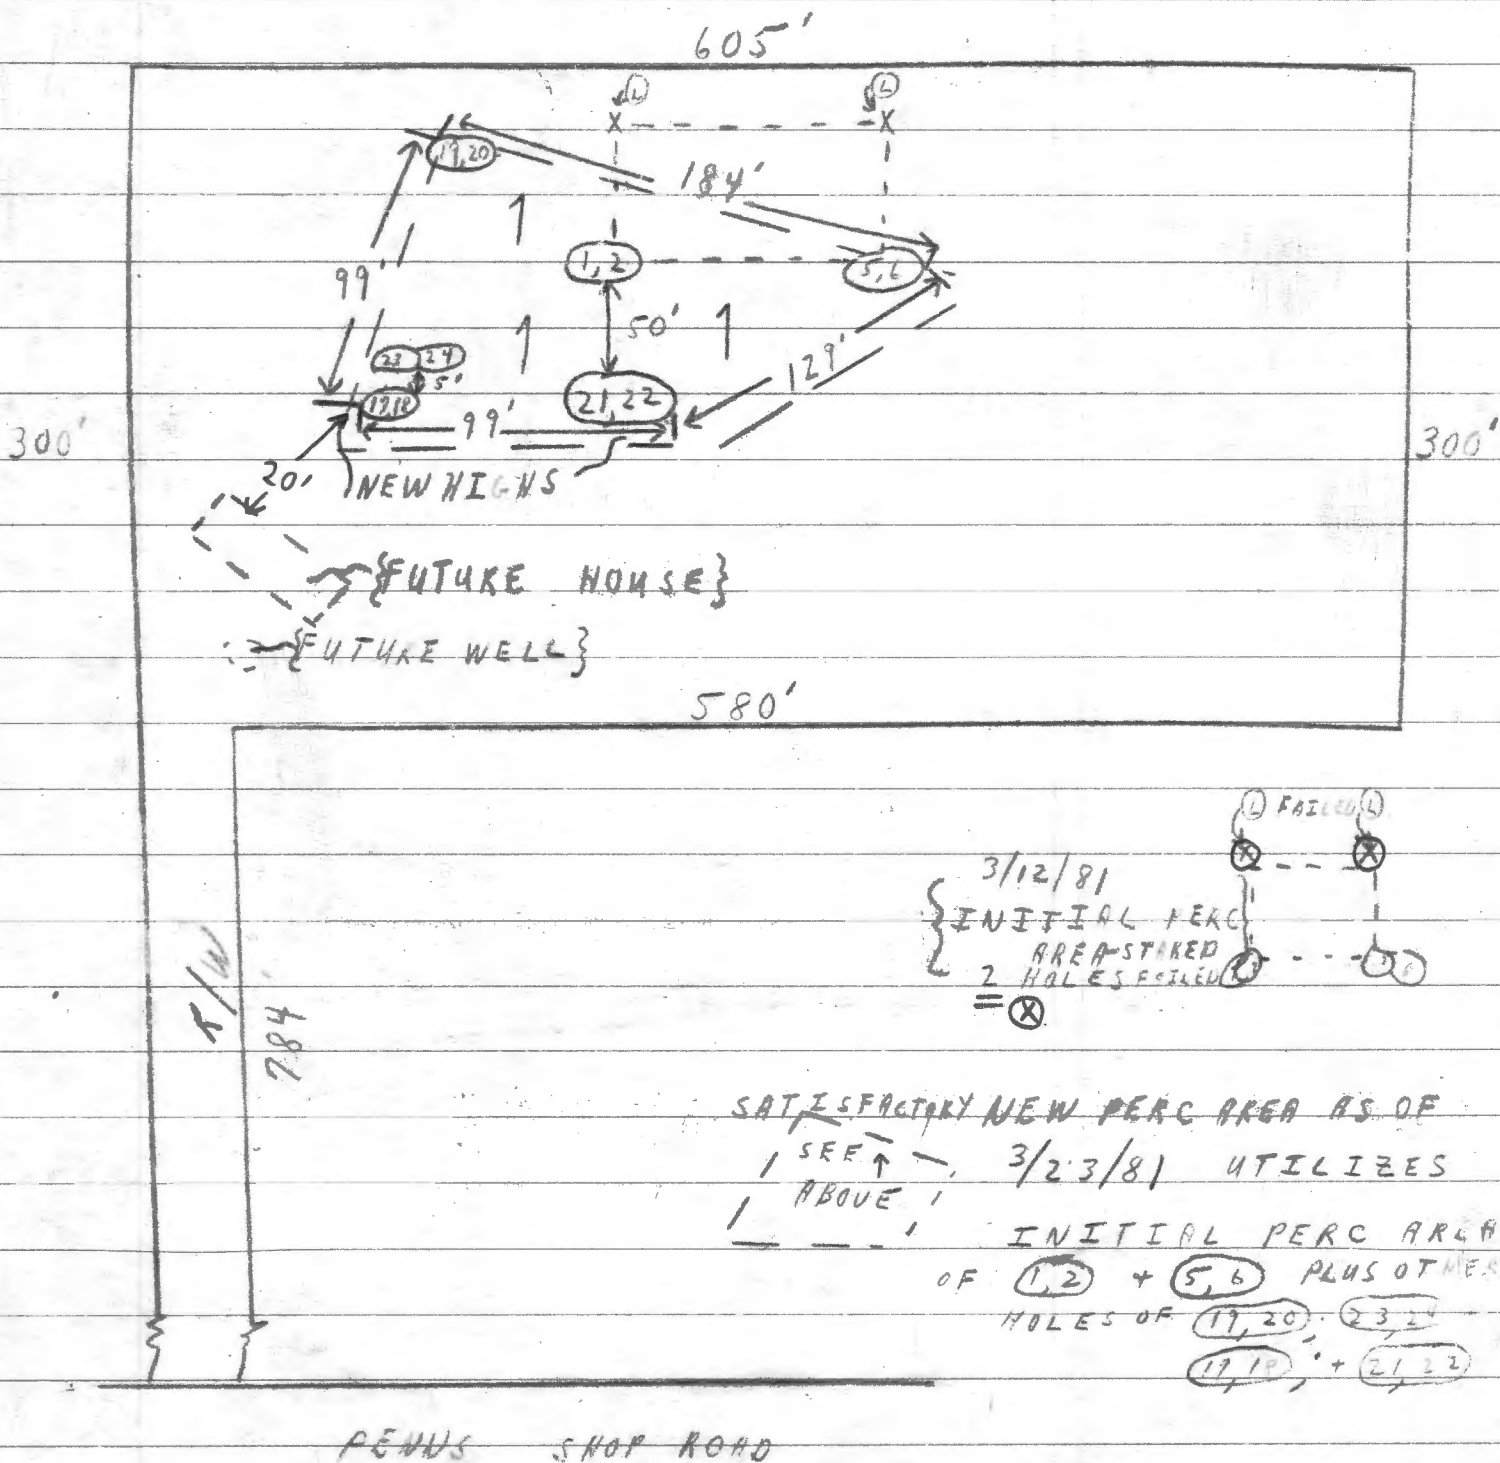 605'
L L
X X
19,20
184'
1,2
5,6
99'
50'
129'
23 24
5'
17,18
21,22
99'
300'
300'
20'
NEW HIGHS
{FUTURE HOUSE}
{FUTURE WELL}
580'
L FAILED L
X X
3/12/81
{INITIAL PERC}
AREA-STAKED
2 HOLES FAILED
= X
R/W
784'
SATISFACTORY NEW PERC AREA AS OF
SEE
3/23/81 UTILIZES
ABOVE
INITIAL PERC AREA
OF 1,2 + 5,6 PLUS OTHER
HOLES OF 19,20; 23,24
17,18; + 21,22
PENNS SHOP ROAD